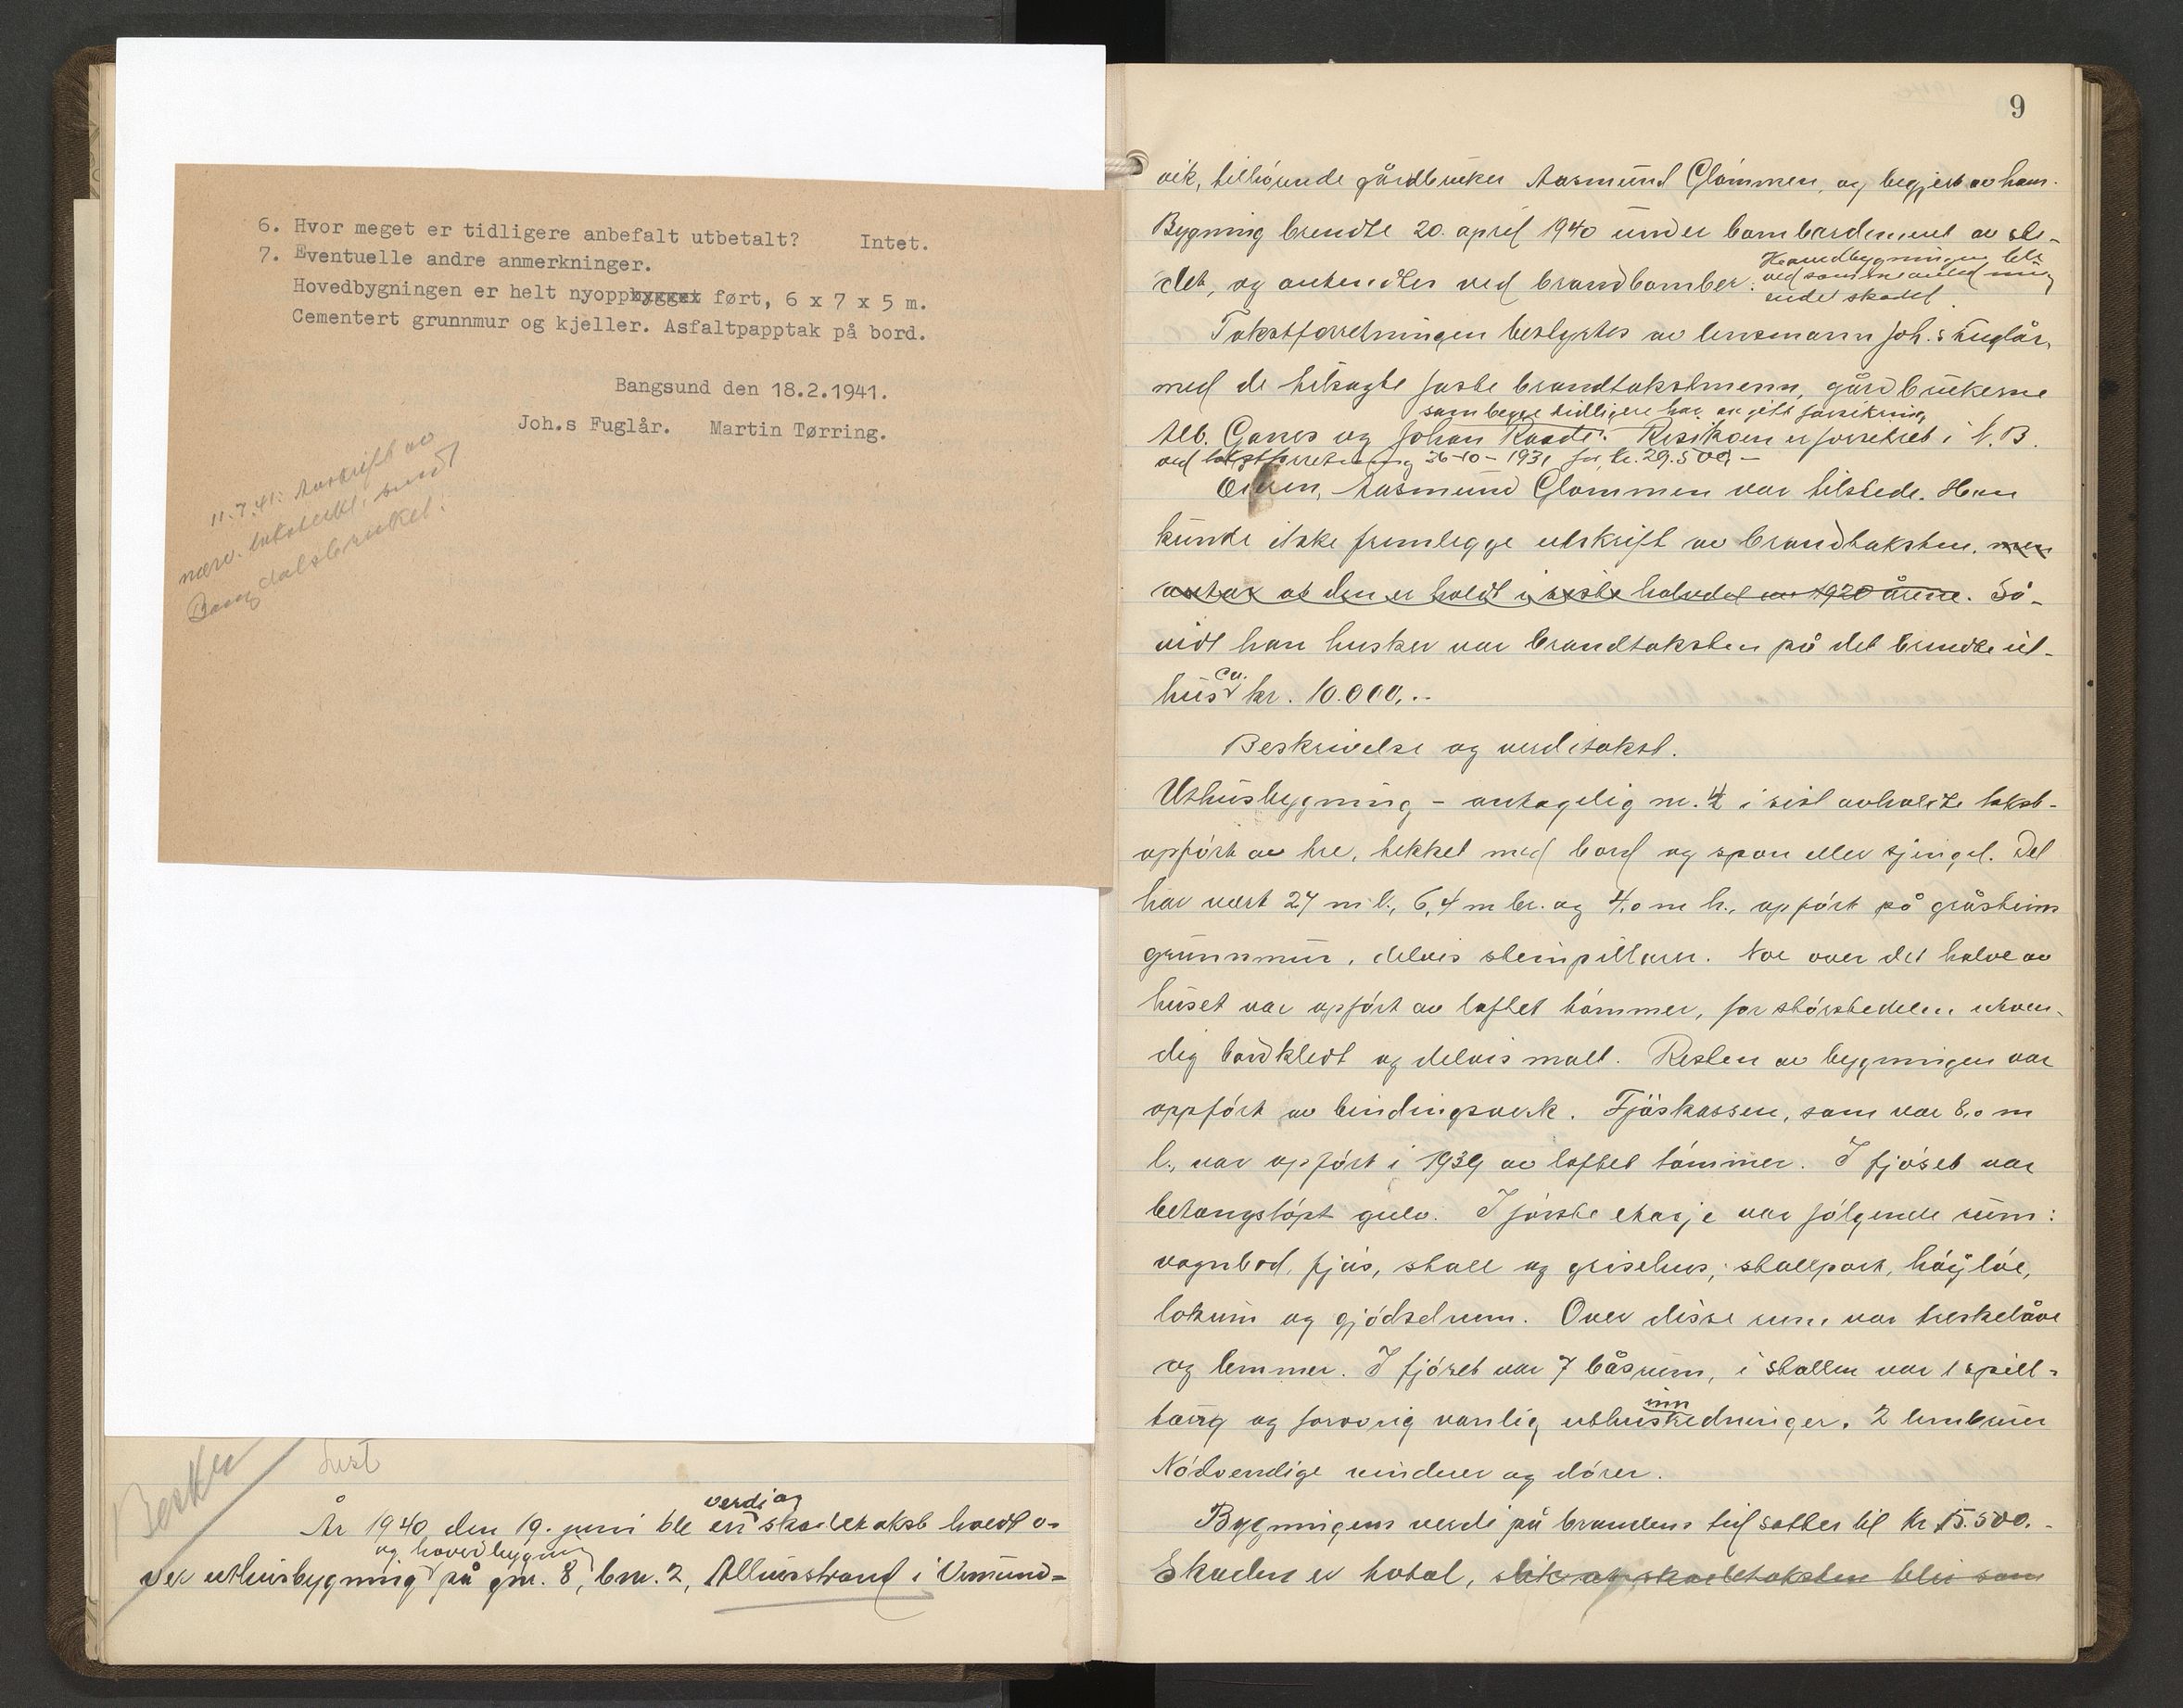 6. Hvor meget er tidligere anbefalt utbetalt? Intet.
7. Eventuelle andre anmerkninger.
Hovedbygningen er helt nyoppbygget ført, 6 x 7 x 5 m.
Cementert grunnmur og kjeller. Asfaltpapptak på bord.
Bangsund den 18.2.1941.
Joh.s Fuglår. Martin Tørring.
11.7.41: Avskrift av
nærv. takst sendt
Bangdalsbruket.
År 1940, den 19. juni ble en verdi og skadetakst holdt o-
ver uthusbygning og hovedbygning på gnr. 8, bnr. 2, Allhusstrand i Vemund-
9
vik, tilhørende gårdbruker Aasmund Glømmen, og begjert av ham.
Bygning brendte 20. april 1940 under bombardement av ste-
det, og antendtes ved brandbomber. Hovedbygningen ble
ved samme anledning
endel skadet.
Takstforretningen bestyrtes av lensmann Joh.s Fuglår,
med de tilsagte faste brandtakstmenn, gårdbrukerne
som begge tidligere har avgitt forsikring
Alb. Ganes og Johan Raade. Resikoen er forsikret i N.B.
ved takstforretning 26-10-1931 for kr. 29.500,-
Eieren, Aasmund Glømmen var tilstede. Han
kunde ikke fremlegge utskrift av brandtaksten, men
antar at den er holdt i siste halvdel av 1920 årene. Så-
vidt han husker var brandtaksten på det brendte ut-
hus ca. kr. 10.000,--
Beskrivelse og verditakst.
Uthusbygning - antagelig nr. 4 i sist avholdte takst-
opført av tre, tekket med bord og spon eller sjingel. Det
har vært 27 m l., 6,4 m br. og 4,0 m h., opført på gråsteins
grunnmur, delvis steinpillarer. Noe over det halve av
huset var opført av laftet tømmer, for størstedelen utven-
dig bordkledt og delvis malt. Resten av bygningen var
oppført av bindingsverk. Fjøskassen, som var 8,0 m
l., var opført i 1939 av laftet tømmer. I fjøset var
betongstøpt gulv. I første etasje var følgende rum:
vognbod, fjøs, stall og grisehus, stallport, høyløe,
lokum og gjødselrum. Over disse rum var treskelåve
og lemmer. I fjøset var 7 båsrum, i stallen var 1 spill-
tang og forøvrig vanlig uthusinnredninger. 2 lembruer
Nødvendige vinduer og dører.
Bygningens verdi på brandens tid settes til kr. 15.500.-
Skaden er total, slik at skadetaksten blir som